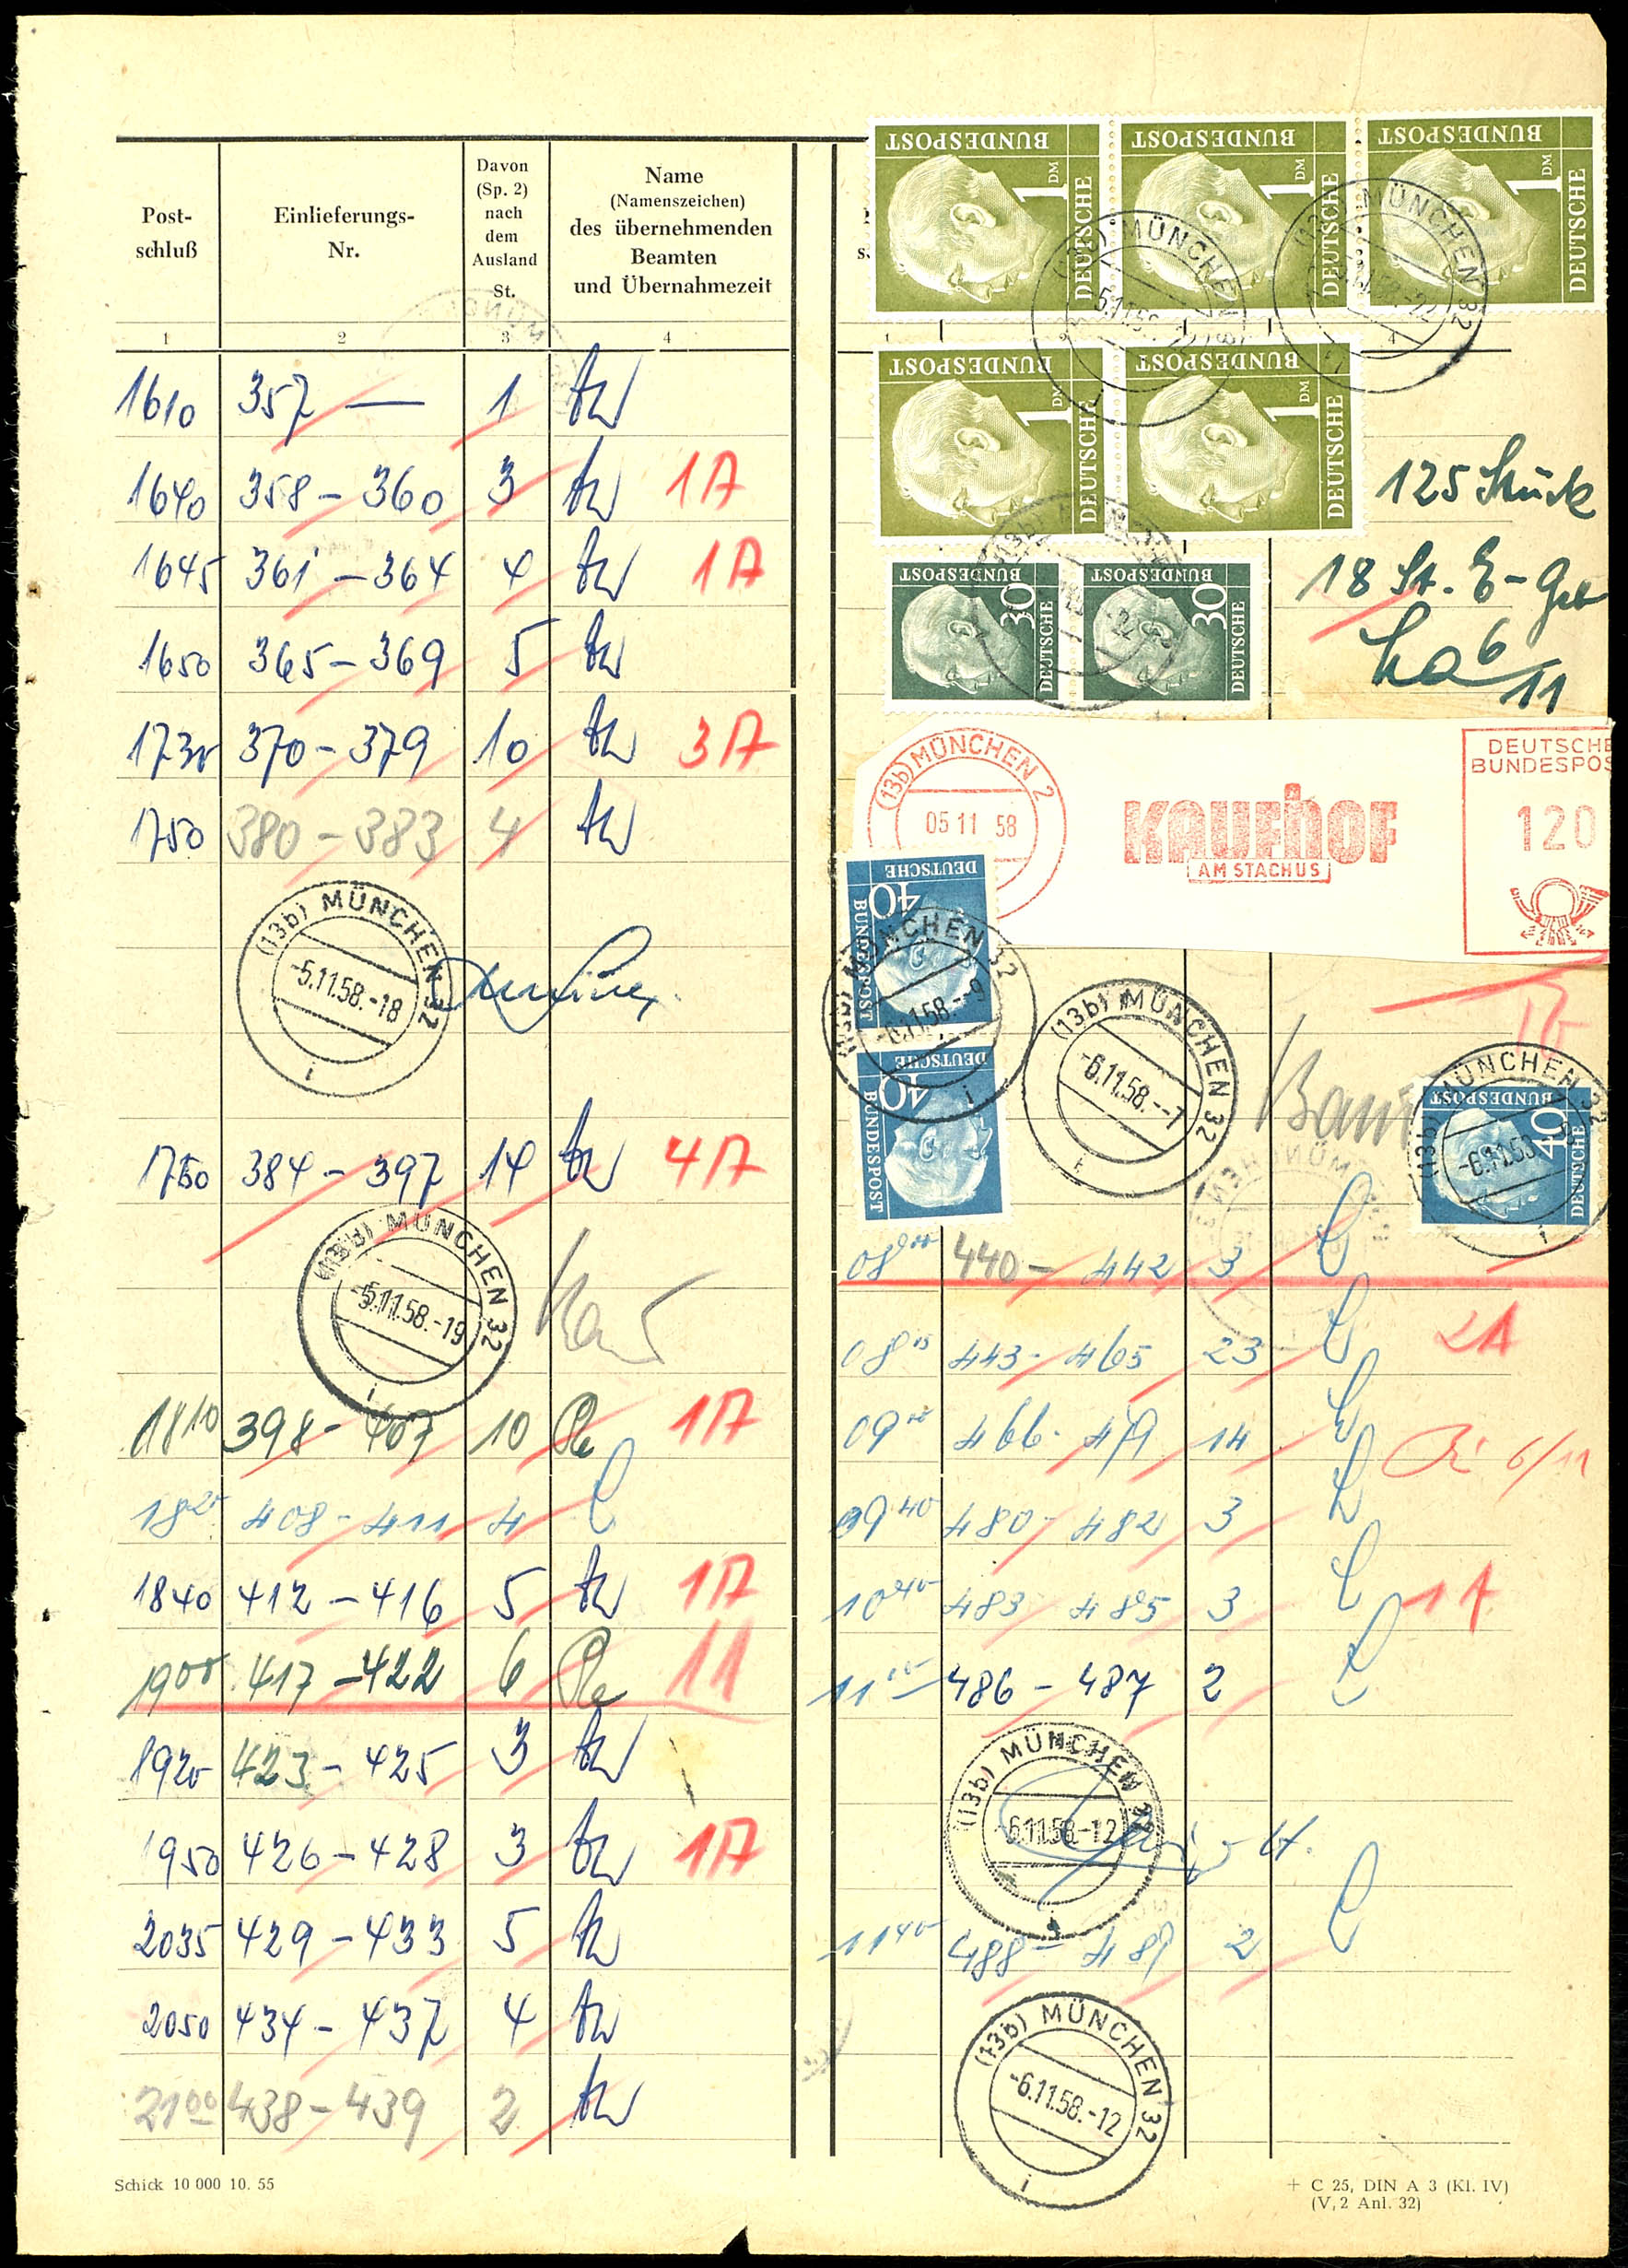 Post-
schluß
Einlieferungs-
Nr.
Davon
(Sp. 2)
nach
dem
Ausland
St.
Name
(Namenszeichen)
des übernehmenden
Beamten
und Übernahmezeit
1 2 3 4
1610 357 — 1
1640 358 – 360 3 1A
1645 361 – 364 4 1A
1650 365 – 369 5
1730 370 – 379 10 3A
1750 380 – 383 4
(13b) MÜNCHEN 32
-5.11.58.-18
i
1750 384 – 397 14 4A
(13b) MÜNCHEN 32
-5.11.58.-19
i
1810 398 – 407 10 1A
1820 408 – 411 4
1840 412 – 416 5 1A
1900 417 – 422 6 11
1920 423 – 425 3
1950 426 – 428 3 1A
2035 429 – 433 5
2050 434 – 437 4
2100 438 – 439 2
Schick 10 000 10. 55
DEUTSCHE BUNDESPOST 1 DM
DEUTSCHE BUNDESPOST 1 DM
DEUTSCHE BUNDESPOST 1 DM
MÜNCHEN
MÜNCHEN 32
DEUTSCHE BUNDESPOST 1 DM
DEUTSCHE BUNDESPOST 1 DM
125 Stück
DEUTSCHE BUNDESPOST 30
DEUTSCHE BUNDESPOST 30
18 St. E-
6/11
(13b) MÜNCHEN 2
05 11 58
KAUFHOF
AM STACHUS
DEUTSCHE
BUNDESPOS
120
DEUTSCHE BUNDESPOST 40
MÜNCHEN 32
-6.11.58.--9
i
DEUTSCHE BUNDESPOST 40
(13b) MÜNCHEN 32
-6.11.58.--7
i
DEUTSCHE BUNDESPOST 40
(13b) MÜNCHEN 32
i
0800 440 – 442 3
0815 443 - 465 23 2A
0900 466 - 479 14 6/11
0940 480 - 482 3
1040 483 - 485 3 1A
486 – 487 2
(13b) MÜNCHEN 32
-6.11.58.-12
i
1140 488 – 489 2
(13b) MÜNCHEN 32
-6.11.58.-12
i
+ C 25, DIN A 3 (Kl. IV)
(V, 2 Anl. 32)